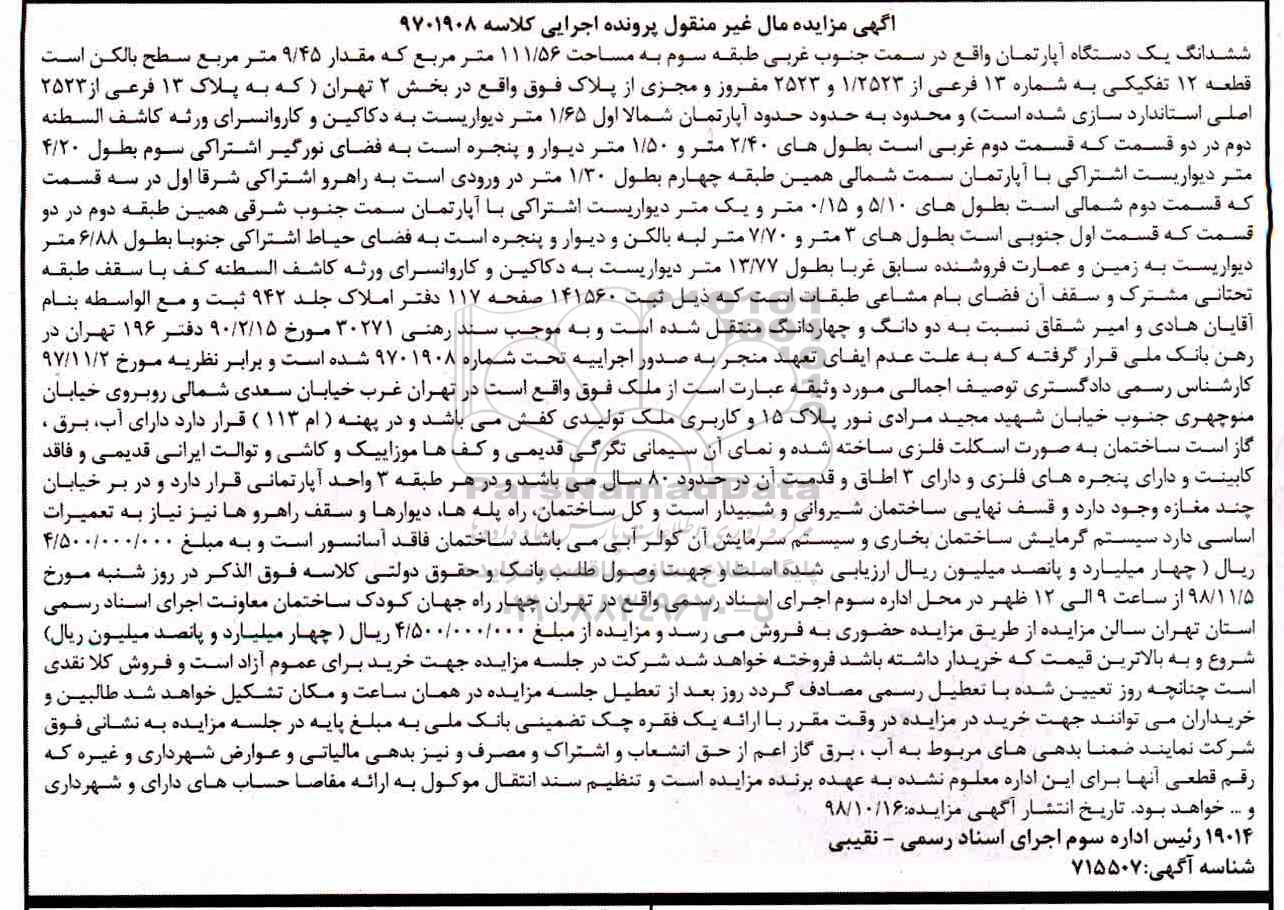 اگهی مزایده مال غیر منقول پرونده اجرایی کلاسه ۹۷۰۱۹۰۸
ششدانگ یک دستگاه آپارتمان واقع در سمت جنوب غربی طبقه سوم به مساحت ۱۱۱/۵۶ متر مربع که مقدار ۹/۴۵ متر مربع سطح بالکن است
قطعه ۱۲ تفکیکی به شماره ۱۳ فرعی از ۱/۲۵۲۳ و ۲۵۲۳ مفروز و مجزی از پلاک فوق واقع در بخش ۲ تهران ( که به پلاک ۱۳ فرعی از۲۵۲۳
اصلی استاندارد سازی شده است) و محدود به حدود حدود آپارتمان شمالا اول ۱/۶۵ متر دیواریست به دکاکین و کاروانسرای ورثه کاشف السطنه
دوم در دو قسمت که قسمت دوم غربی است بطول های ۲/۴۰ متر و ۱/۵۰ متر دیوار و پنجره است به فضای نورگیر اشتراکی سوم بطول ۴/۲۰
متر دیواریست اشتراکی با آپارتمان سمت شمالی همین طبقه چهارم بطول ۱/۳۰ متر در ورودی است به راهرو اشتراکی شرقا اول در سه قسمت
که قسمت دوم شمالی است بطول های ۵/۱۰ و ۰/۱۵ متر و یک متر دیواریست اشتراکی با آپارتمان سمت جنوب شرقی همین طبقه دوم در دو
قسمت که قسمت اول جنوبی است بطول های ۳ متر و ۷/۷۰ متر لبه بالکن و دیوار و پنجره است به فضای حیاط اشتراکی جنوبا بطول ۶/۸۸ متر
دیواریست به زمین و عمارت فروشنده سابق غربا بطول ۱۳/۷۷ متر دیواریست به دکاکین و کاروانسرای ورثه کاشف السطنه کف با سقف طبقه
تحتانی مشترک و سقف آن فضای بام مشاعی طبقات است که ذیل ثبت ۱۴۱۵۶۰ صفحه ۱۱۷ دفتر املاک جلد ۹۴۲ ثبت و مع الواسطه بنام
آقایان هادی و امیر شقاق نسبت به دو دانگ و چهاردانگ منتقل شده است و به موجب سند رهنی ۳۰۲۷۱ مورخ ۹۰/۲/۱۵ دفتر ۱۹۶ تهران در
رهن بانک ملی قرار گرفته که به علت عدم ایفای تعهد منجر به صدور اجراییه تحت شماره ۹۷۰۱۹۰۸ شده است و برابر نظریه مورخ ۹۷/۱۱/۲
کارشناس رسمی دادگستری توصیف اجمالی مورد وثیقه عبارت است از ملک فوق واقع است در تهران غرب خیابان سعدی شمالی روبروی خیابان
منوچهری جنوب خیابان شهید مجید مرادی نور پلاک ۱۵ و کاربری ملک تولیدی کفش می باشد و در پهنه ( ام ۱۱۳ ) قرار دارد دارای آب، برق ،
گاز است ساختمان به صورت اسکلت فلزی ساخته شده و نمای آن سیمانی تگرگی قدیمی و کف ها موزاییک و کاشی و توالت ایرانی قدیمی و فاقد
کابینت و دارای پنجره های فلزی و دارای ۳ اطاق و قدمت آن در حدود ۸۰ سال می باشد و در هر طبقه ۳ واحد آپارتمانی قرار دارد و در بر خیابان
چند مغازه وجود دارد و قسف نهایی ساختمان شیروانی و شیبدار است و کل ساختمان، راه پله ها، دیوارها و سقف راهرو ها نیز نیاز به تعمیرات
اساسی دارد سیستم گرمایش ساختمان بخاری و سیستم سرمایش آن کولر آبی می باشد ساختمان فاقد آسانسور است و به مبلغ ۴/۵۰۰/۰۰۰/۰۰۰
ریال ( چهار میلیارد و پانصد میلیون ریال ارزیابی شده است و جهت وصول طلب بانک و حقوق دولتی کلاسه فوق الذکر در روز شنبه مورخ
۹۸/۱۱/۵ از ساعت ۹ الی ۱۲ ظهر در محل اداره سوم اجرای اسناد رسمی واقع در تهران چهار راه جهان کودک ساختمان معاونت اجرای اسناد رسمی
استان تهران سالن مزایده از طریق مزایده حضوری به فروش می رسد و مزایده از مبلغ ۴/۵۰۰/۰۰۰/۰۰۰ ریال ( چهار میلیارد و پانصد میلیون ریال)
شروع و به بالاترین قیمت که خریدار داشته باشد فروخته خواهد شد شرکت در جلسه مزایده جهت خرید برای عموم آزاد است و فروش کلا نقدی
است چنانچه روز تعیین شده با تعطیل رسمی مصادف گردد روز بعد از تعطیل جلسه مزایده در همان ساعت و مکان تشکیل خواهد شد طالبین و
خریداران می توانند جهت خرید در مزایده در وقت مقرر با ارائه یک فقره چک تضمینی بانک ملی به مبلغ پایه در جلسه مزایده به نشانی فوق
شرکت نمایند ضمنا بدهی های مربوط به آب ، برق گاز اعم از حق انشعاب و اشتراک و مصرف و نیز بدهی مالیاتی و عوارض شهرداری و غیره که
رقم قطعی آنها برای این اداره معلوم نشده به عهده برنده مزایده است و تنظیم سند انتقال موکول به ارائه مفاصا حساب های دارای و شهرداری
و ... خواهد بود. تاریخ انتشار آگهی مزایده:۹۸/۱۰/۱۶
۱۹۰۱۴ رئیس اداره سوم اجرای اسناد رسمی - نقیبی
شناسه آگهی:۷۱۵۵۰۷
ParsNamadData